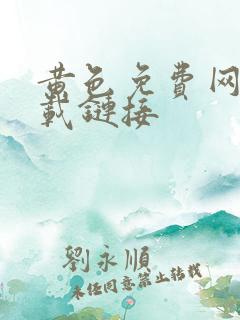 黄色免费网
载链接
劉永順
未经同意禁止转载